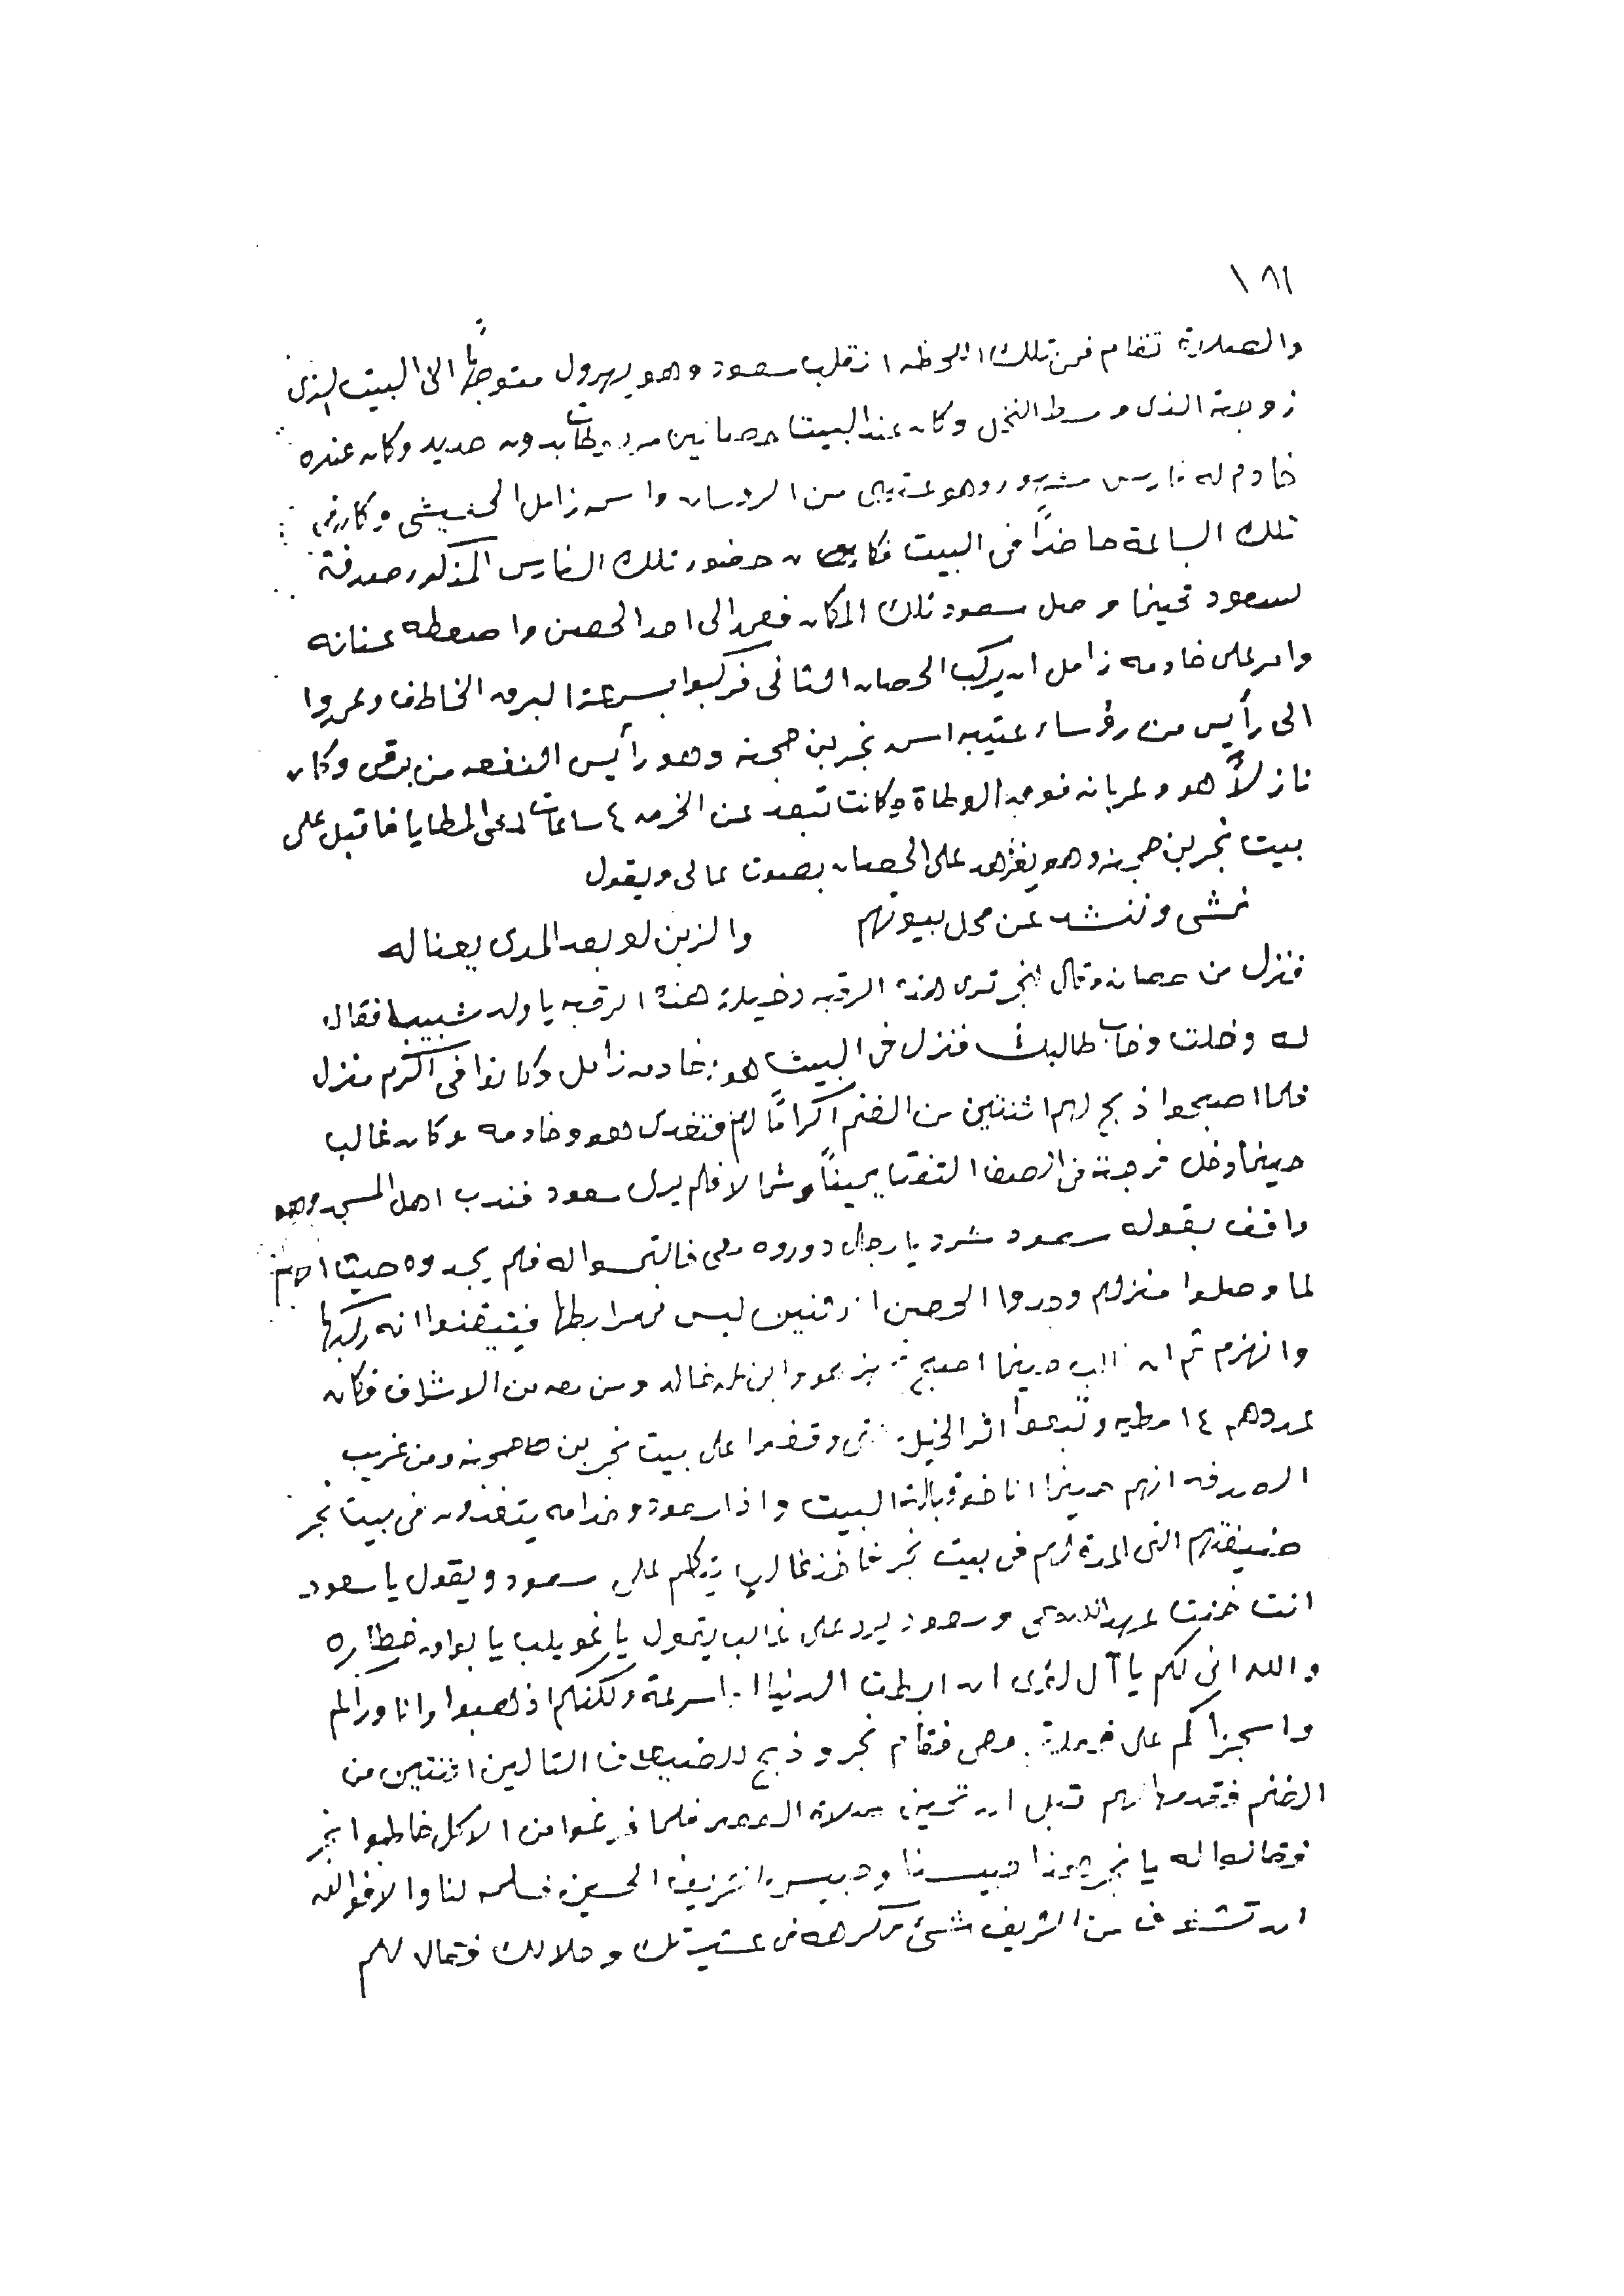 ١٨١
والصلاة تقام فمن تلك اللحظه انقلب سعود وهو يهرول متوجهاً الى البيت الذى
زوجة الذى وسط النخل وكان عند البيت حصانين مربوطات بدون حديد وكان عنده
خادم له فارس مشهور وهو عتيبى من الروسان واسمه زامل الحنيشى وكان فى
تلك الساعة حاضراً فى البيت فكان حضور تلك الفارس المذكور صدفة
لسعود فحينما وصل سعود تلك المكان فعمد الى احد الحصن واصعطه عنانه
وامر على خادمه زامل ان يركب الحصان الثانى فركبوا بسرعة البرق الخاطف وعمدوا
الى رأيس من رؤساء عتيبه اسمه نجر بن حجنه وهو رأيس النفعه من برقى وكان
نازلاً هو وعربانه فوق الوطاة وكانت تبعد عن الخرمه ٤ ساعات لدعى المطايا فاقبل على
بيت نجر بن حجنه وهو على الحصان بصوت عالى ويقول
نمشى وننشد عن محل بيوتهم والزبن لو بعد المدى يعنا له
فنزل من حصانه وقال انجر ترى هذه الرقبه دخيلة هذه الرقبه يا ولد شبيب فقال
له دخلت وخاب طالبك فنزل فى البيت هو وخادمه زامل وكانوا فى اكرم منزل
فلما اصبحوا ذبح لهم اثنتين من الغنم اكراماً لهم فتغدى هو وخادمه وكان غالب
حينما دخل فرجة فى الصف التفت يميناً وشمالا فلم يرى سعود فندب اهل المسجد وهو
واقف بقوله سعود شرد يا رجال دوروه معى فالتمسوا له فلم يجدوه حيث انهم
لما وصلوا منزلهم وجدوا الحصن اثنين ليس فى مرابطها فتيقنوا انه ركبها
وانهزم ثم ان غالب حينما اصبح ومن معه من الاشراف فكان
عددهم ١٤ مطيه وتبعوا اثر الخيل حتى وقفوا على بيت نجر بن حجنه ومن غريب
الصدفه انهم حينما اناخوا قبالة البيت واذا سعود وخدامه يتغدون فى بيت نجر
ضيفتهم التى المدة لهم فى بيت نجر فاخذ غالب يتكلم على سعود ويقول يا سعود
انت خنت عهد الله معى وسعود يرد على غالب يقول يا غويلب يا بواق خطاره
والله انى لكم يا آل لؤى ان ابطت الدنيا او اسرعة ولكنكم اذهبوا وانا وراكم
واسجزاكم على معى فقام نجر وذبح للضيفان التالين اثنتين من
الغنم فقدمها لهم قبل ان تحين صلاة العصر فلما فرغوا من الاكل خاطبوا نجر
فقالوا له يا نجر هذا حبيسنا وحبيس الشريف الحسين فسلمه لنا والا فوالله
ان تشوف من الشريف شئ تكرهه فى عشيرتك وحلالك فقال لهم